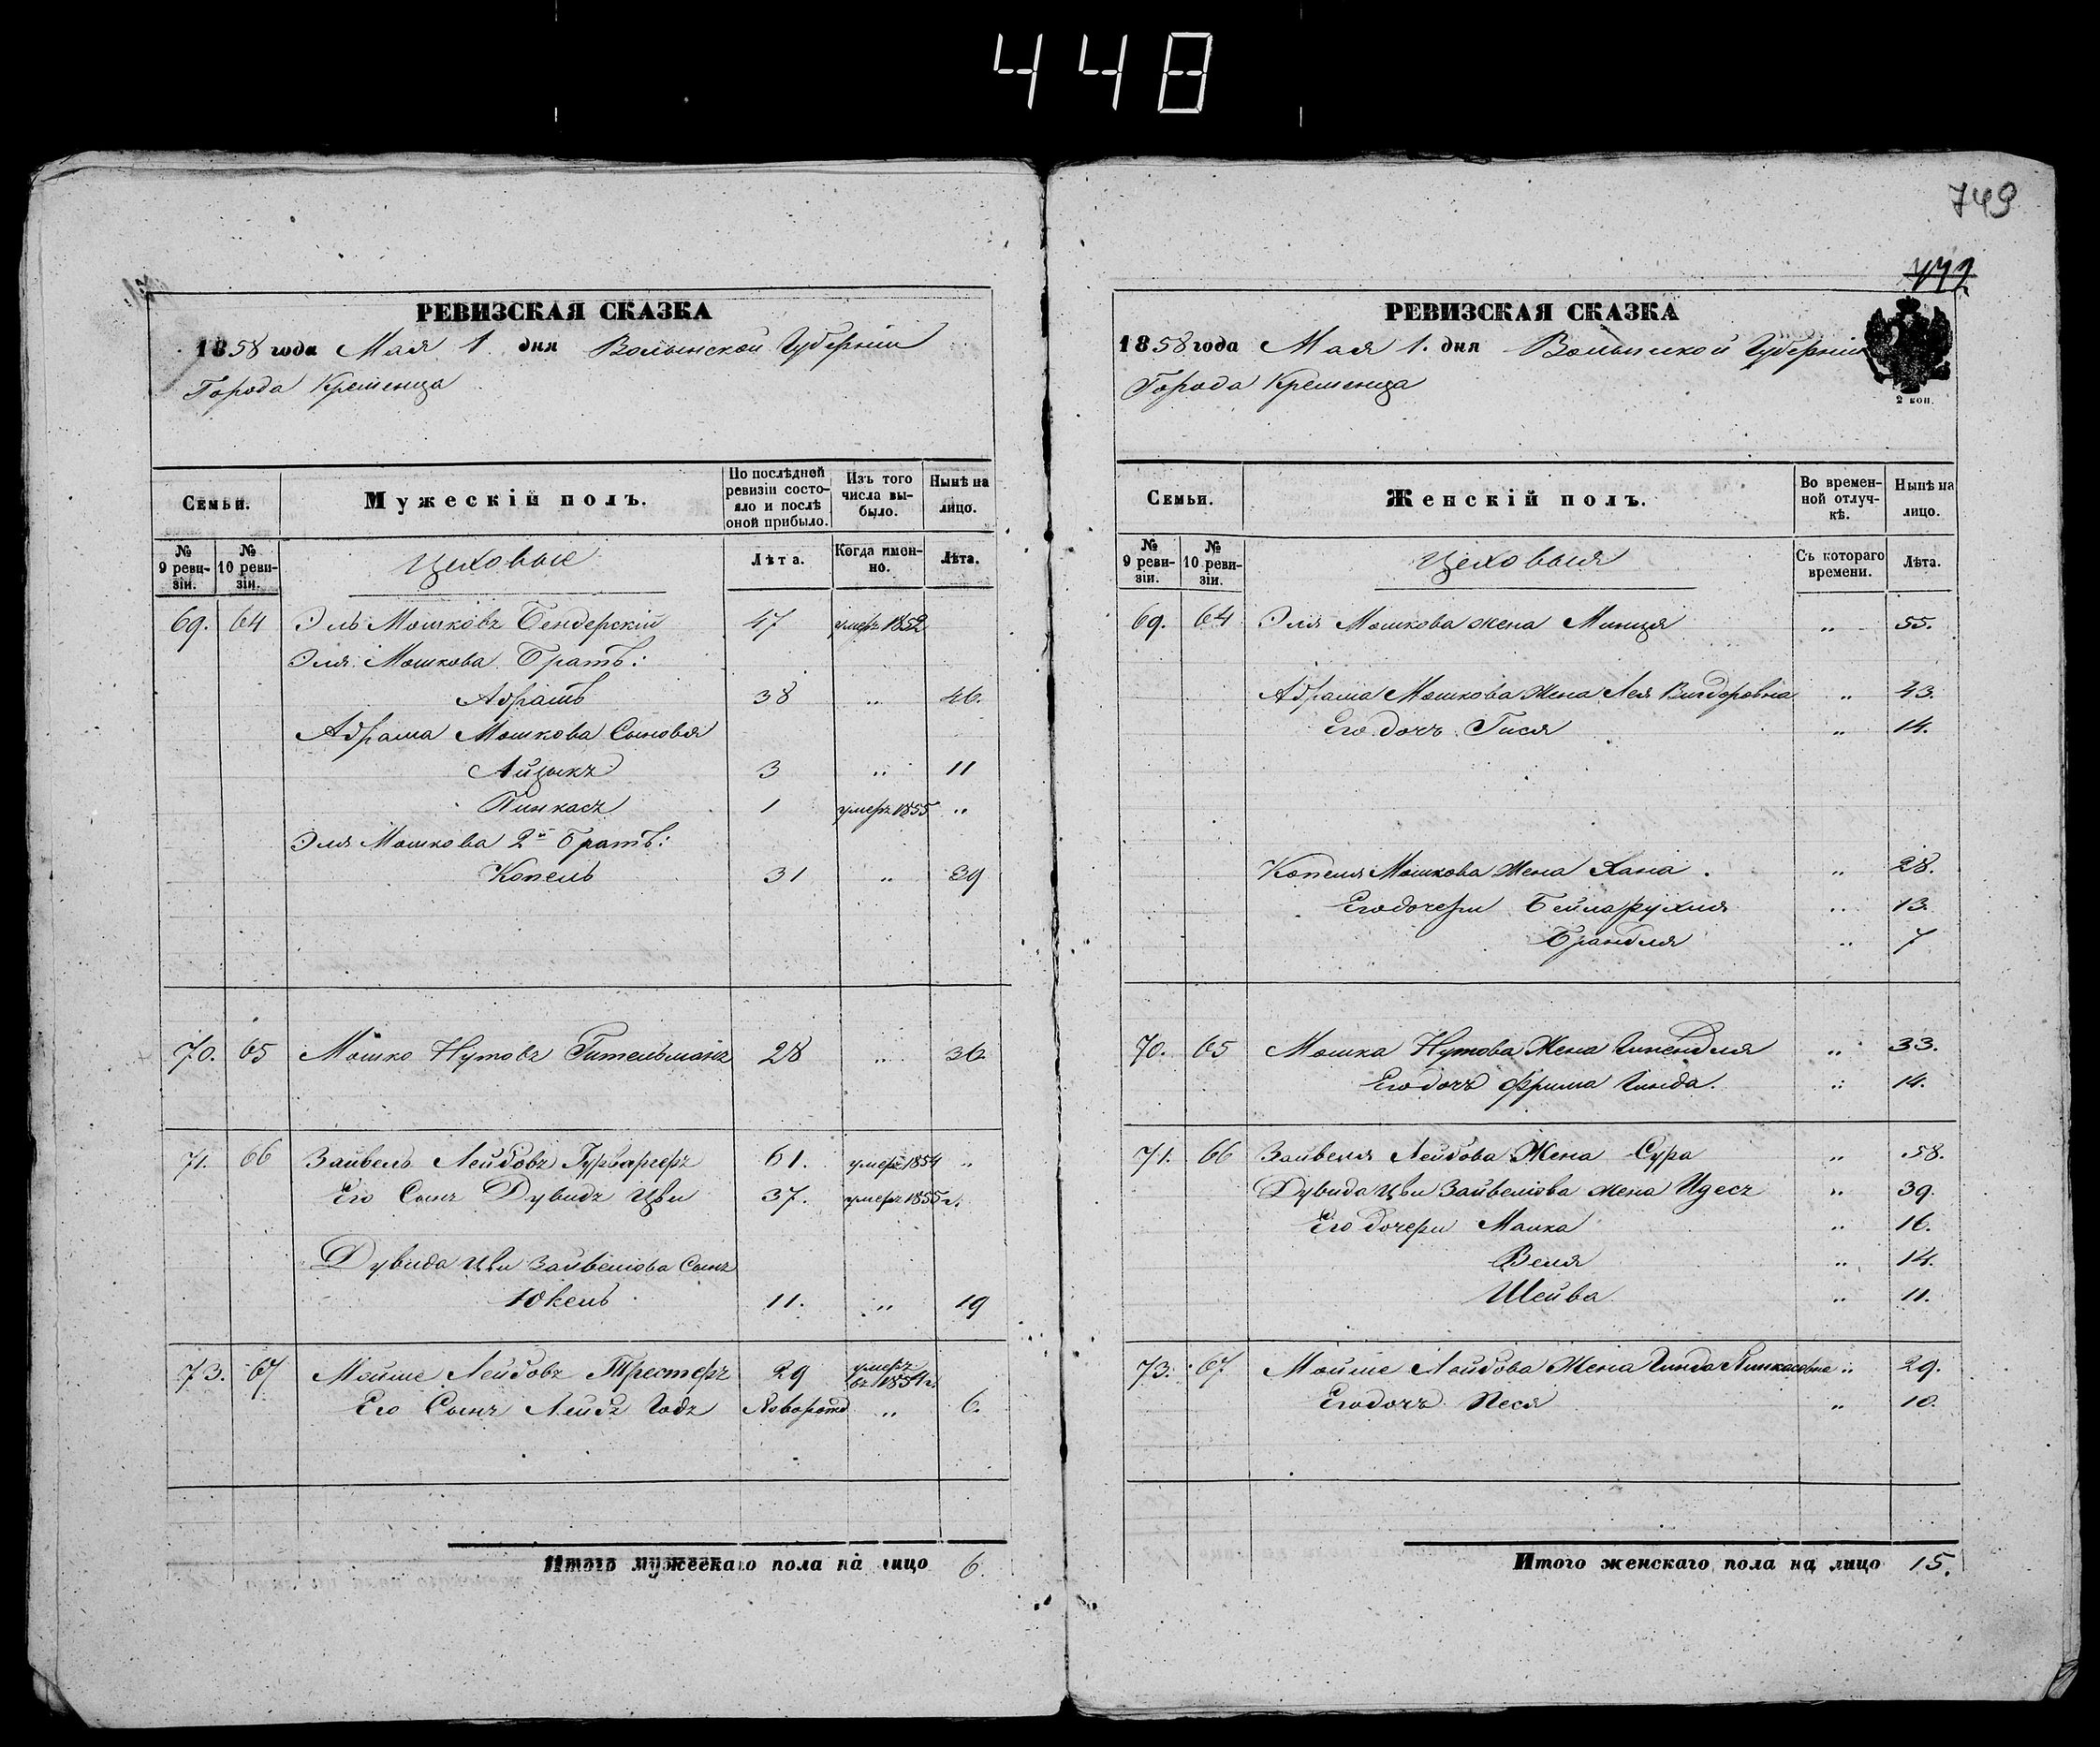 448
749
РЕВИЗСКАЯ СКАЗКА
1858 года Мая 1 дня Волынской Губерніи
Города Кременца
Семьи.
Мужескій полъ.
По послѣдней ревизіи состояло и послѣ оной прибыло.
Изъ того числа выбыло.
Нынѣ на лицо.
№ 9 ревизіи.
№ 10 ревизіи.
Цеховые
Лѣта.
Когда именно.
Лѣта.
69. 64 Эль Мошковъ Бендерскій 47 умеръ 1852
Эля Мошкова братъ:
Абрамъ 38 " 46.
Абрама Мошкова Сыновья
Айзыкъ 3 " 11
Пинкасъ 1 умеръ 1855 "
Эля Мошкова 2й братъ:
Копель 31 " 39
70. 65 Мошко Нутовъ Гительманъ 28 " 36
71. 66 Зайвель Лейбовъ 61. умеръ 1854 "
Его Сынъ Дувидъ Цви 37. умеръ 1855 г.
Дувида Цви Зайвелева Сынъ
Юкель 11. " 19
73. 67 Мойше Лейбовъ Трестеръ 29 умеръ въ 1851 г.
Его Сынъ Лейбъ Новорожд " 6.
Итого мужескаго пола на лицо 6.
РЕВИЗСКАЯ СКАЗКА
1858 года Мая 1. дня Волынской Губерніи
Города Кременца
2 коп.
Семьи.
Женскій полъ.
Во временной отлучкѣ.
Нынѣ на лицо.
№ 9 ревизіи.
№ 10 ревизіи.
Цеховыя
Съ котораго времени.
Лѣта.
69. 64 Эля Мошкова жена Минця " 55.
Абрама Мошкова Жена Лея Вигдоровна " 43.
Его дочь Гися " 14.
Копеля Мошкова Жена Хана. " 28.
Его дочери Бейларухля " 13.
Брандля " 7
70. 65 Мошка Нутова Жена " 33.
Его дочь Фрима Гинда. " 14.
71. 66 Зайвеля Лейбова Жена Сура " 58.
Дувида Цви Зайвелева жена Идесъ " 39.
Его дочери Малка " 16.
Веля " 14.
Шейва " 11.
73. 67 Мойше Лейбова Жена Гинда Пинкасовна " 29.
Его дочь Песя " 10.
Итого женскаго пола на лицо 15.